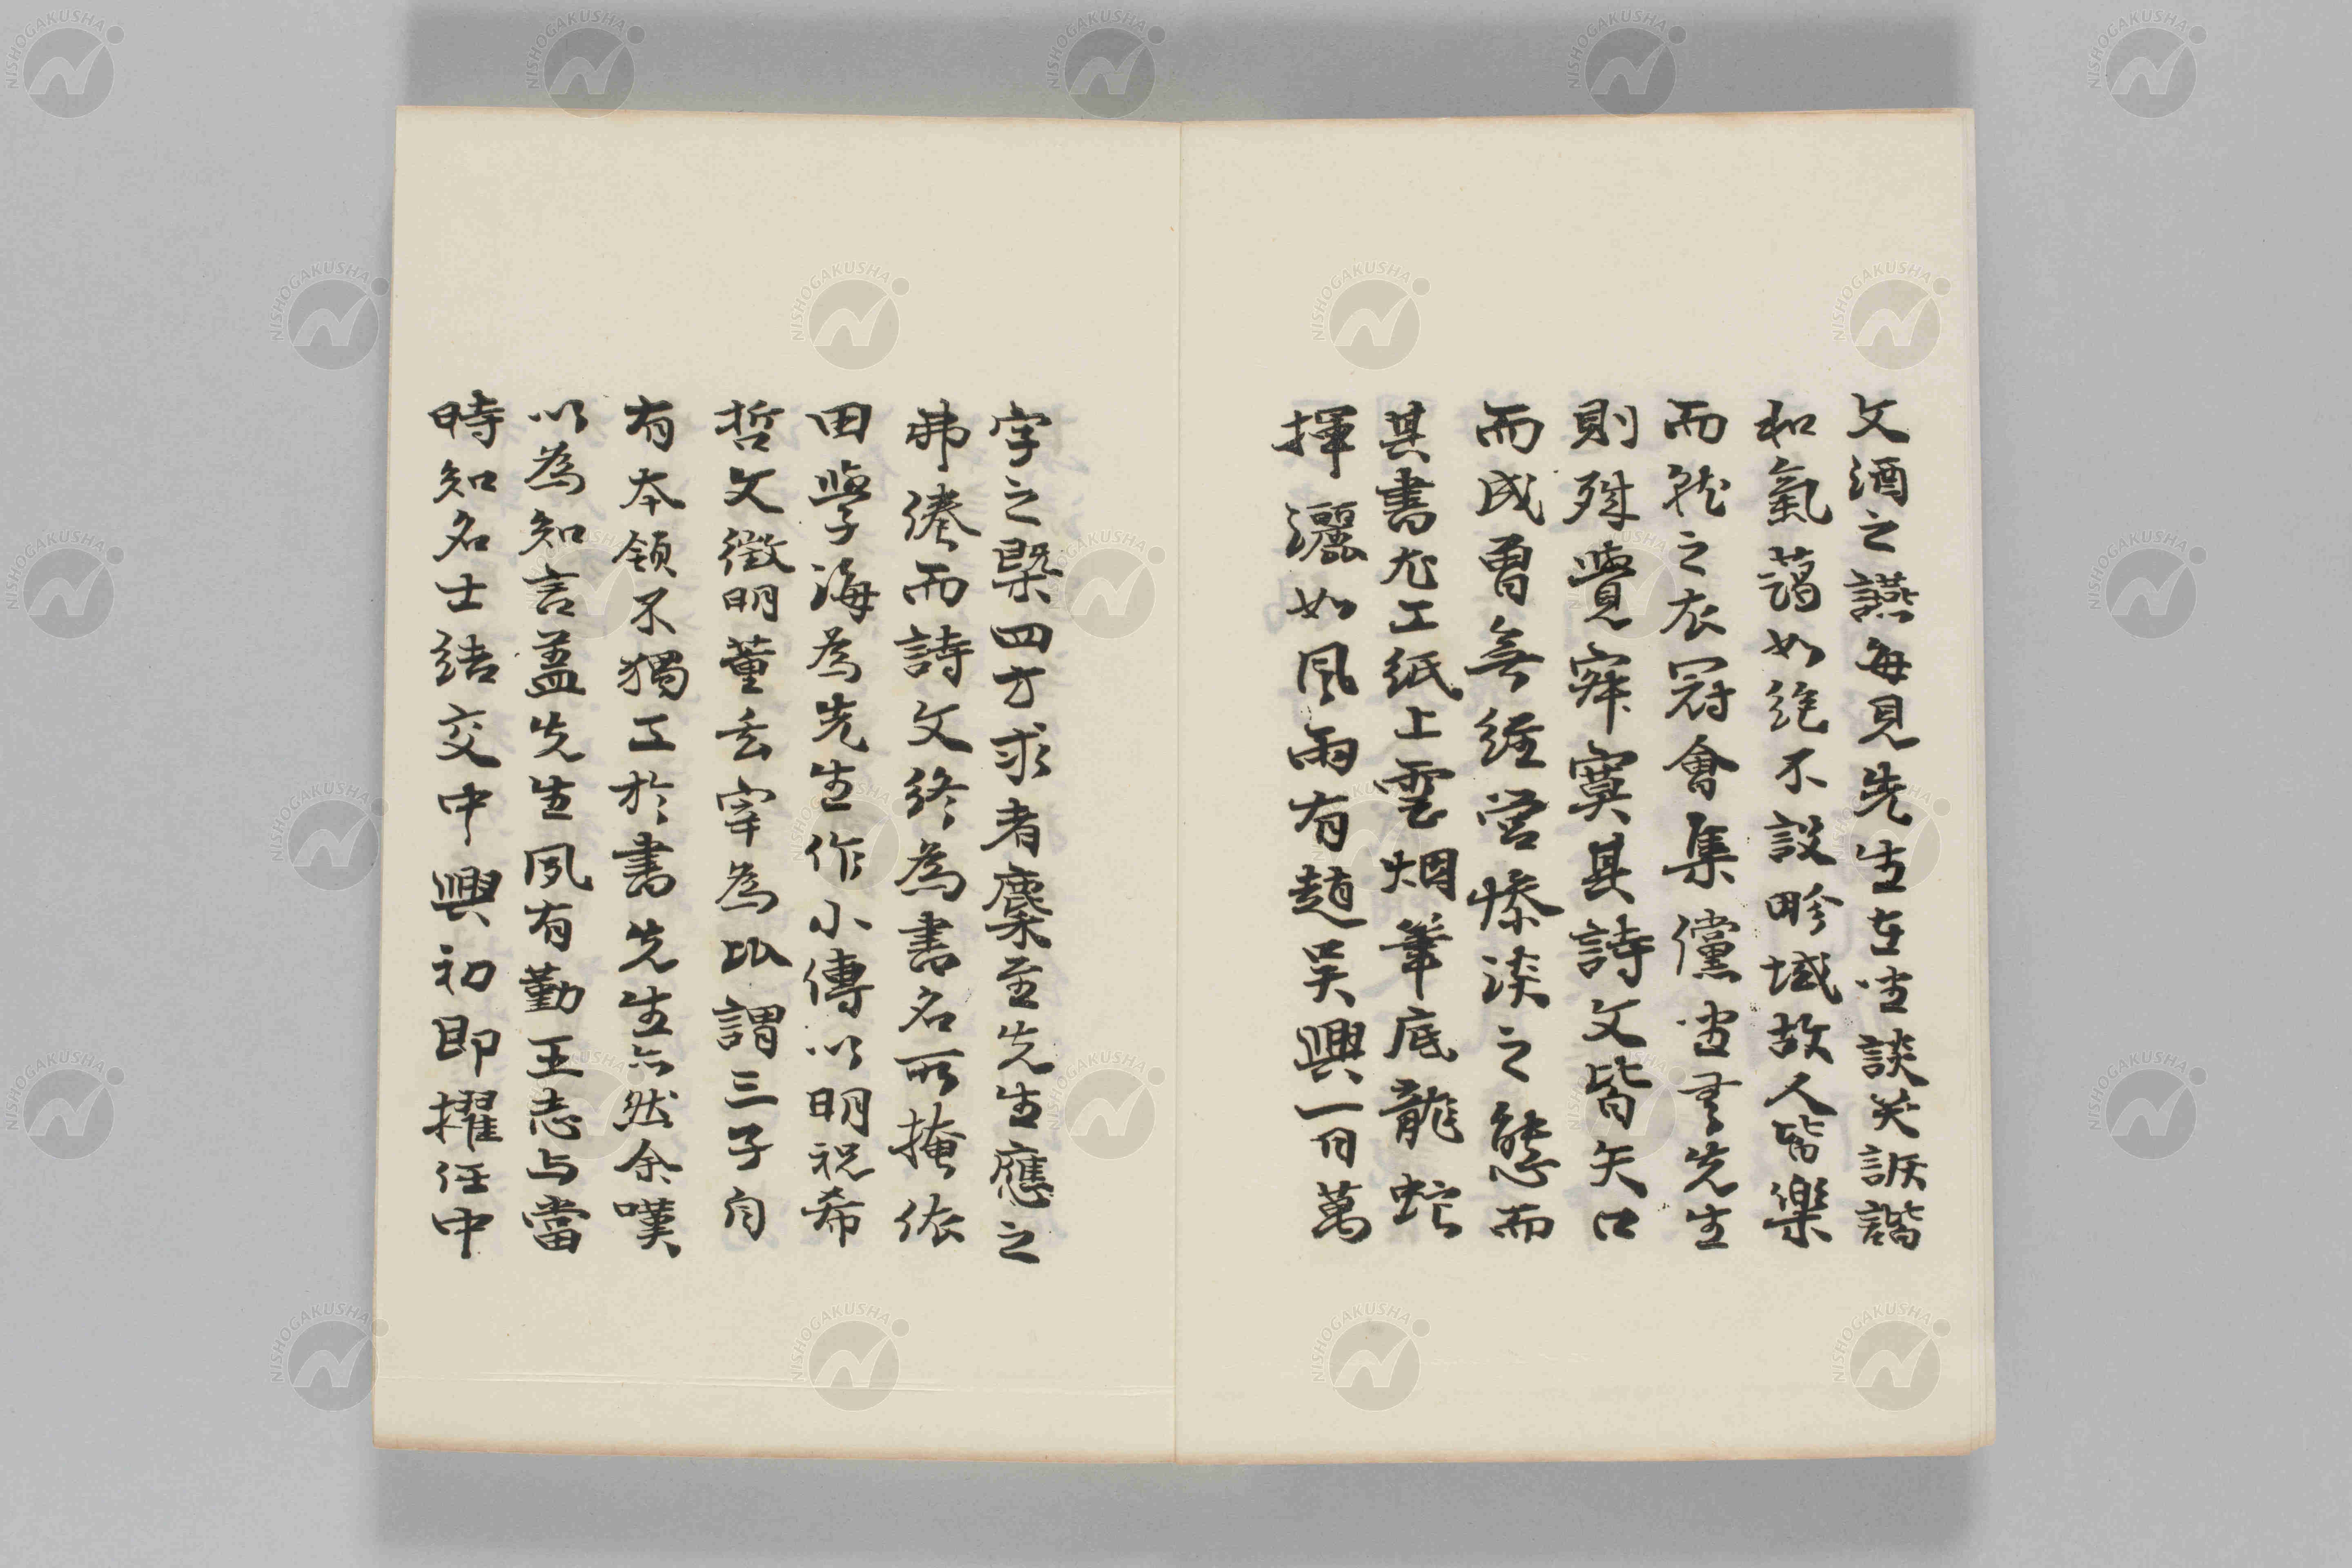 文酒之讌每見先生在坐談笑詼諧
和氣藹如絶不設畛域故人皆樂
而就之衣冠會集儻坐無先生
則殊覺寂寞其詩文皆矢口
而成曾無經營慘淡之態而
其書尤工紙上雲烟筆底龍蛇
揮灑如風雨有趙吳興一日萬
字之槩四方求者麇至先生應之
弗倦而詩文終為書名所掩依
田學海為先生作小傳以明祝希
哲文徵明董玄宰為比謂三子自
有本領不獨工於書先生亦然余嘆
以為知言盖先生夙有勤王志与當
時知名士結交中興初即擢任中
NISHOGAKUSHA